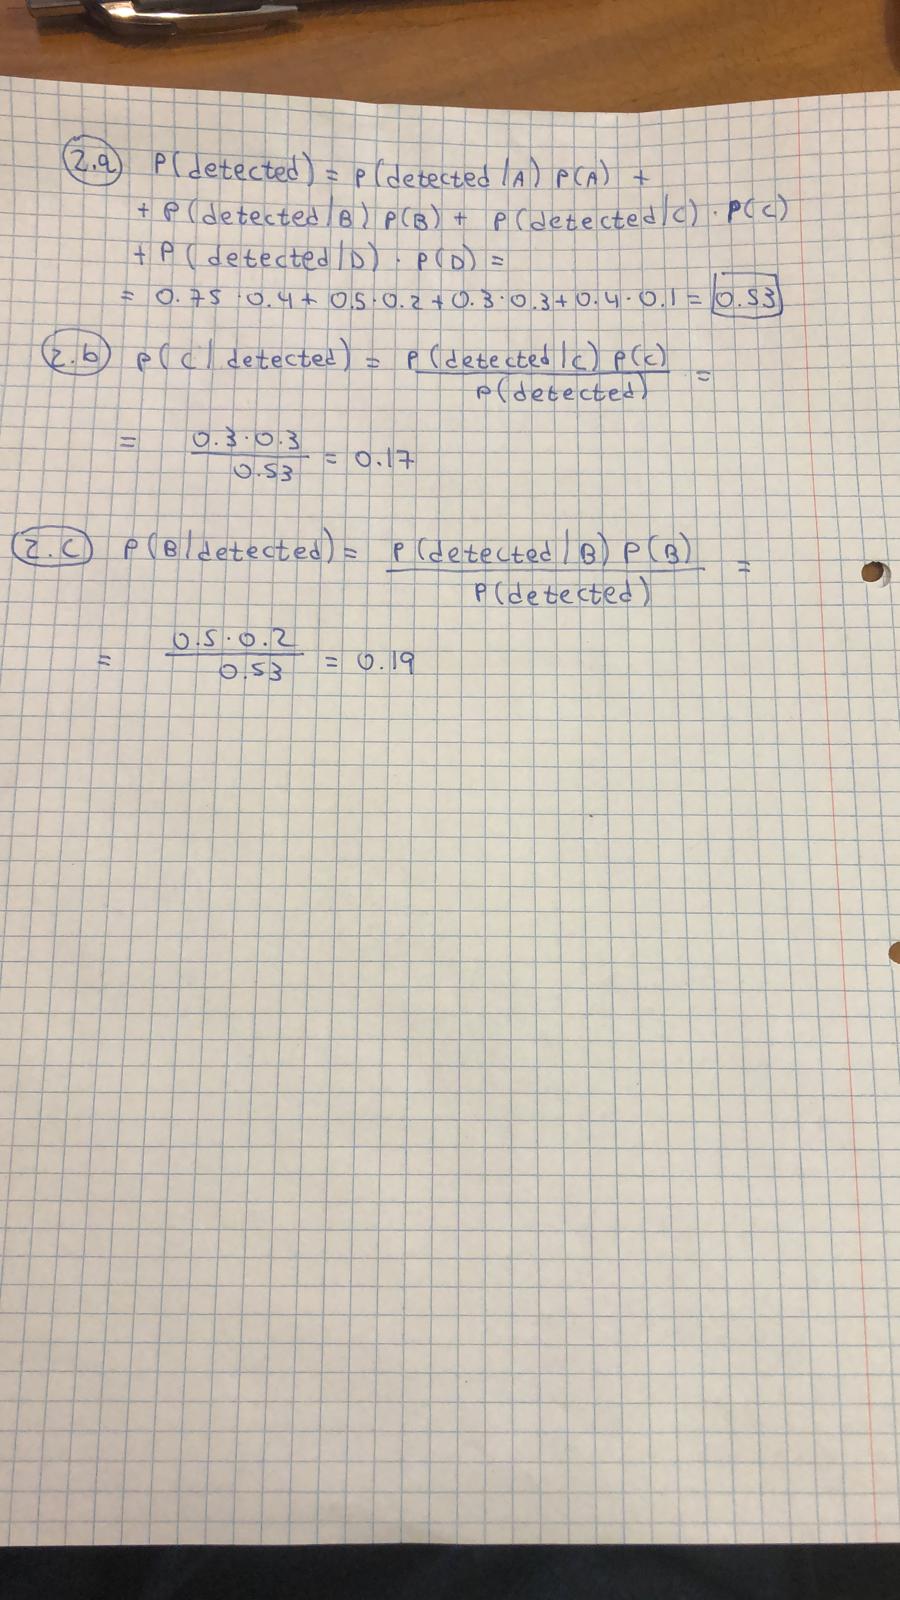 2.a P(detected) = P(detected/A) P(A) +
+ P(detected/B) P(B) + P(detected/C) · P(C)
+ P(detected/D) · P(D) =
= 0.75 · 0.4 + 0.5 · 0.2 + 0.3 · 0.3 + 0.4 · 0.1 = 0.53
2.b P(C/detected) = P(detected/C) P(C) =
P(detected)
= 0.3 · 0.3 = 0.17
0.53
2.c P(B/detected) = P(detected/B) P(B) =
P(detected)
= 0.5 · 0.2 = 0.19
0.53